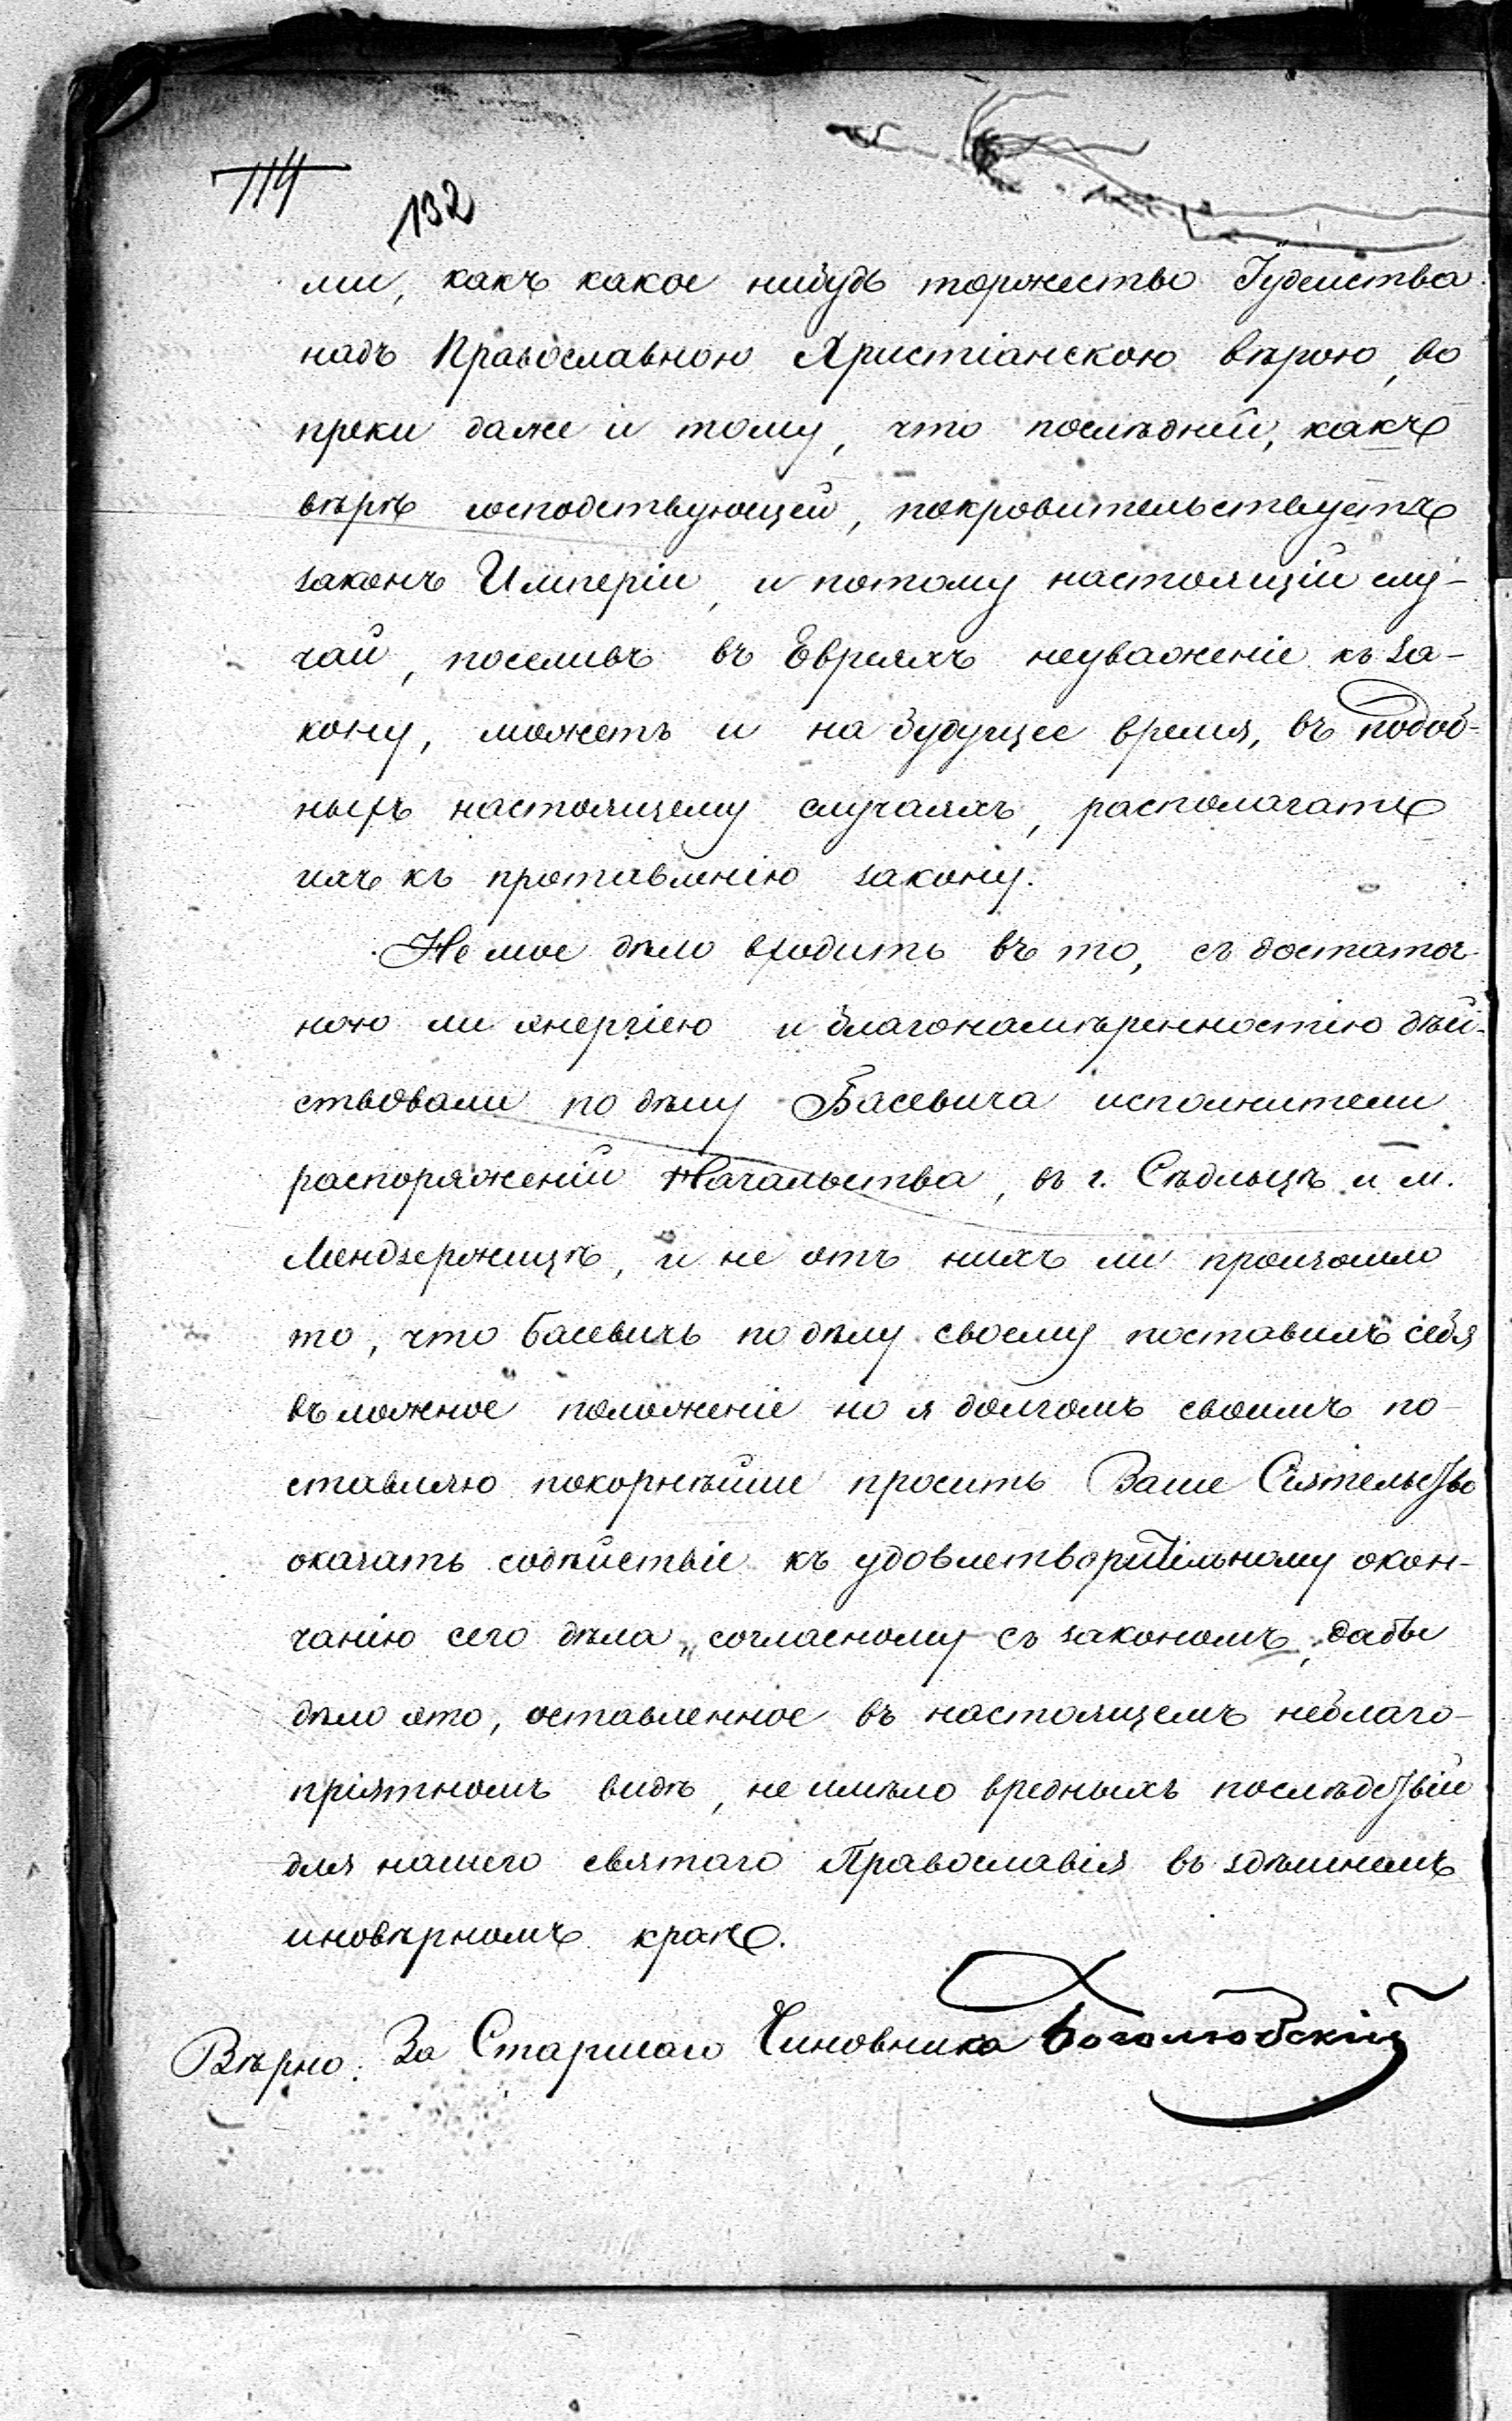 114
132
ми, какъ какое нибудь торжество Іудейства
надъ Православною Христіанскою вѣрою, во
преки даже и тому, что послѣдней, какъ
вѣрѣ господствующей, покровительствуетъ
законъ Имперіи, и потому настоящій слу-
чай, поселивъ въ Евреяхъ неуваженіе къ за-
кону, можетъ и на будущее время, въ подоб-
ныхъ настоящему случаяхъ, располагать
ихъ къ протавленію закону.
Не мое дѣло входить въ то, съ достаточ
ною ли энергіею и благонамѣренностію дѣй-
ствовали по дѣлу Басевича исполнители
распоряженій Начальства, въ г. Сѣдльцѣ и м.
Мендзержицѣ, и не отъ нихъ ли произошло
то, что Басевичъ по дѣлу своему поставилъ себя
въ ложное положеніе но я долгомъ своимъ по-
ставляю покорнѣйше просить Ваше Сіятельство
оказать содѣйствіе къ удовлетворительному окон-
чанію сего дѣла, согласному съ закономъ, дабы
дѣло это, оставленное въ настоящемъ неблаго-
пріятномъ видѣ, не имѣло вредныхъ послѣдствій
для нашего святаго Православія въ здѣшнемъ
иновѣрномъ краѣ.
Вѣрно: За Старшаго Чиновника Боголюбскій